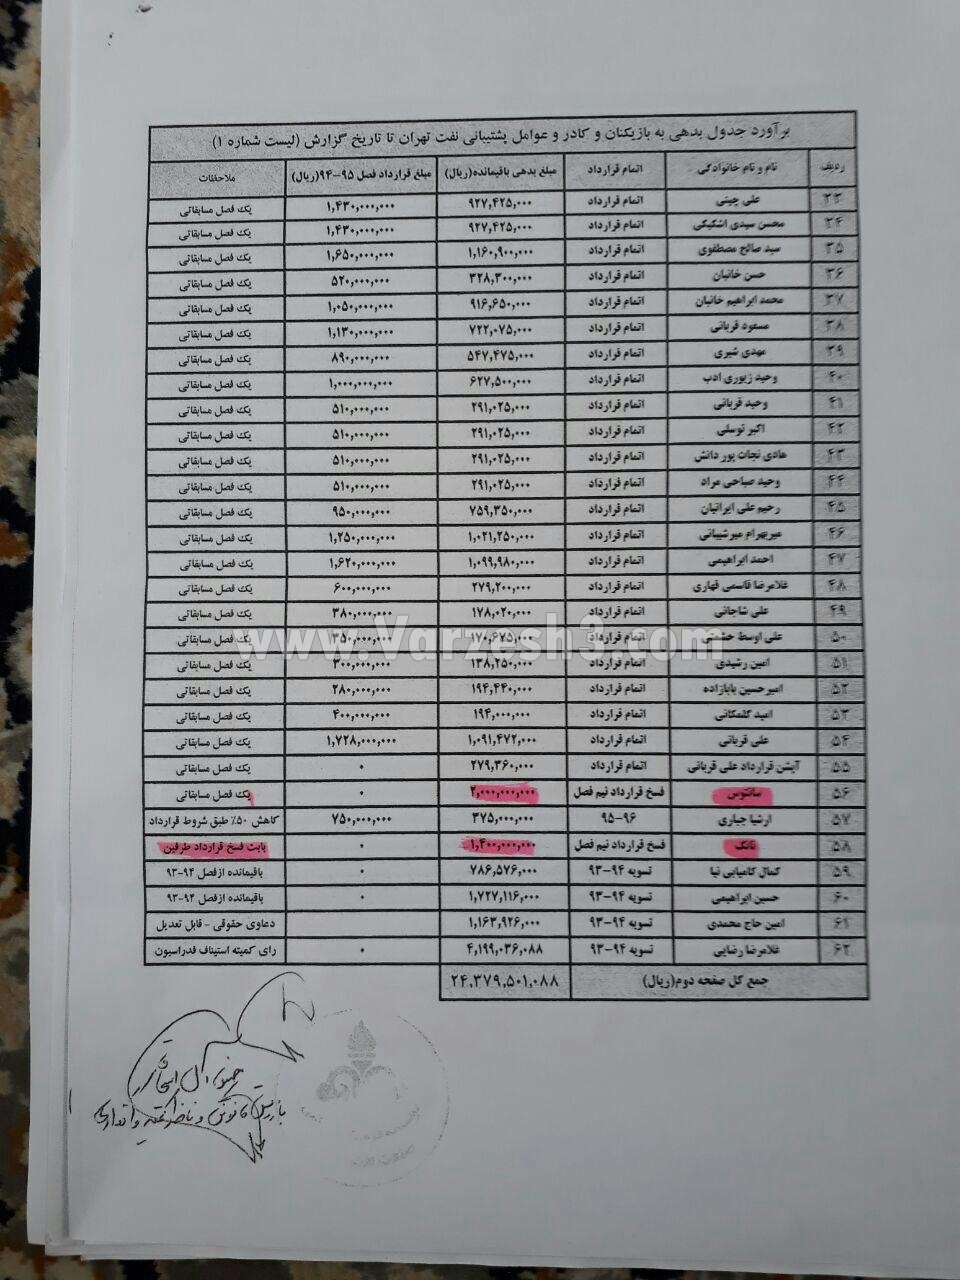 برآورد جدول بدهی به بازیکنان و کادر و عوامل پشتیبانی نفت تهران تا تاریخ گزارش (لیست شماره ۱)
ردیف نام و نام خانوادگی اتمام قرارداد مبلغ بدهی باقیمانده(ریال) مبلغ قرارداد فصل ۹۵-۹۴(ریال) ملاحظات
۳۳ علی چینی اتمام قرارداد ۹۲۷,۴۲۵,۰۰۰ ۱,۴۳۰,۰۰۰,۰۰۰ یک فصل مسابقاتی
۳۴ محسن سیدی اشکیکی اتمام قرارداد ۹۲۷,۴۲۵,۰۰۰ ۱,۴۳۰,۰۰۰,۰۰۰ یک فصل مسابقاتی
۳۵ سید صالح مصطفوی اتمام قرارداد ۱,۱۶۰,۹۰۰,۰۰۰ ۱,۶۵۰,۰۰۰,۰۰۰ یک فصل مسابقاتی
۳۶ حسن خانبان اتمام قرارداد ۳۲۸,۳۰۰,۰۰۰ ۵۲۰,۰۰۰,۰۰۰ یک فصل مسابقاتی
۳۷ محمد ابراهیم خانبان اتمام قرارداد ۹۱۶,۶۵۰,۰۰۰ ۱,۰۵۰,۰۰۰,۰۰۰ یک فصل مسابقاتی
۳۸ مسعود قربانی اتمام قرارداد ۷۲۲,۰۷۵,۰۰۰ ۱,۱۳۰,۰۰۰,۰۰۰ یک فصل مسابقاتی
۳۹ مهدی شیری اتمام قرارداد ۵۴۷,۴۷۵,۰۰۰ ۸۹۰,۰۰۰,۰۰۰ یک فصل مسابقاتی
۴۰ وحید زیوری ادب اتمام قرارداد ۶۲۷,۵۰۰,۰۰۰ ۱,۰۰۰,۰۰۰,۰۰۰ یک فصل مسابقاتی
۴۱ وحید قربانی اتمام قرارداد ۲۹۱,۰۲۵,۰۰۰ ۵۱۰,۰۰۰,۰۰۰ یک فصل مسابقاتی
۴۲ اکبر توسلی اتمام قرارداد ۲۹۱,۰۲۵,۰۰۰ ۵۱۰,۰۰۰,۰۰۰ یک فصل مسابقاتی
۴۳ هادی نجات پور دانش اتمام قرارداد ۲۹۱,۰۲۵,۰۰۰ ۵۱۰,۰۰۰,۰۰۰ یک فصل مسابقاتی
۴۴ وحید صباحی مراد اتمام قرارداد ۲۹۱,۰۲۵,۰۰۰ ۵۱۰,۰۰۰,۰۰۰ یک فصل مسابقاتی
۴۵ رحیم علی ایرانیان اتمام قرارداد ۷۵۹,۳۵۰,۰۰۰ ۹۵۰,۰۰۰,۰۰۰ یک فصل مسابقاتی
۴۶ میربهرام میرشیبانی اتمام قرارداد ۱,۰۲۱,۲۵۰,۰۰۰ ۱,۲۵۰,۰۰۰,۰۰۰ یک فصل مسابقاتی
۴۷ احمد ابراهیمی اتمام قرارداد ۱,۰۹۹,۹۸۰,۰۰۰ ۱,۶۲۰,۰۰۰,۰۰۰ یک فصل مسابقاتی
۴۸ غلامرضا قاسمی قهاری اتمام قرارداد ۲۷۹,۲۰۰,۰۰۰ ۶۰۰,۰۰۰,۰۰۰ یک فصل مسابقاتی
۴۹ علی شاجانی اتمام قرارداد ۱۷۸,۰۲۰,۰۰۰ ۳۸۰,۰۰۰,۰۰۰ یک فصل مسابقاتی
۵۰ علی اوسط حشمتی اتمام قرارداد ۱۷۰,۶۷۵,۰۰۰ ۳۵۰,۰۰۰,۰۰۰ یک فصل مسابقاتی
www.Varzesh3.com
۵۱ امین رشیدی اتمام قرارداد ۱۳۸,۲۵۰,۰۰۰ ۳۰۰,۰۰۰,۰۰۰ یک فصل مسابقاتی
۵۲ امیرحسین بابازاده اتمام قرارداد ۱۹۴,۴۴۰,۰۰۰ ۲۸۰,۰۰۰,۰۰۰ یک فصل مسابقاتی
۵۳ امید کلمکانی اتمام قرارداد ۱۹۴,۰۰۰,۰۰۰ ۴۰۰,۰۰۰,۰۰۰ یک فصل مسابقاتی
۵۴ علی قربانی اتمام قرارداد ۱,۰۹۱,۴۷۲,۰۰۰ ۱,۷۲۸,۰۰۰,۰۰۰ یک فصل مسابقاتی
۵۵ آپشن قرارداد علی قربانی اتمام قرارداد ۲۷۹,۳۶۰,۰۰۰ ۰ یک فصل مسابقاتی
۵۶ سانتوس فسخ قرارداد نیم فصل ۲,۰۰۰,۰۰۰,۰۰۰ ۰ یک فصل مسابقاتی
۵۷ ارشیا جباری ۹۶-۹۵ ۳۷۵,۰۰۰,۰۰۰ ۷۵۰,۰۰۰,۰۰۰ کاهش ۵۰٪ طبق شروط قرارداد
۵۸ تانک فسخ قرارداد نیم فصل ۱,۴۰۰,۰۰۰,۰۰۰ ۰ بابت فسخ قرارداد طرفین
۵۹ کمال کامیابی نیا تسویه ۹۴-۹۳ ۷۸۶,۵۷۶,۰۰۰ ۰ باقیمانده از فصل ۹۴-۹۳
۶۰ حسین ابراهیمی تسویه ۹۴-۹۳ ۱,۷۲۷,۱۱۶,۰۰۰ ۰ باقیمانده از فصل ۹۴-۹۳
۶۱ امین حاج محمدی تسویه ۹۴-۹۳ ۱,۱۶۳,۹۲۶,۰۰۰ دعاوی حقوقی - قابل تعدیل
۶۲ غلامرضا رضایی تسویه ۹۴-۹۳ ۴,۱۹۹,۰۳۶,۰۸۸ ۰ رای کمیته استیناف فدراسیون
جمع کل صفحه دوم(ریال) ۲۴,۳۷۹,۵۰۱,۰۸۸